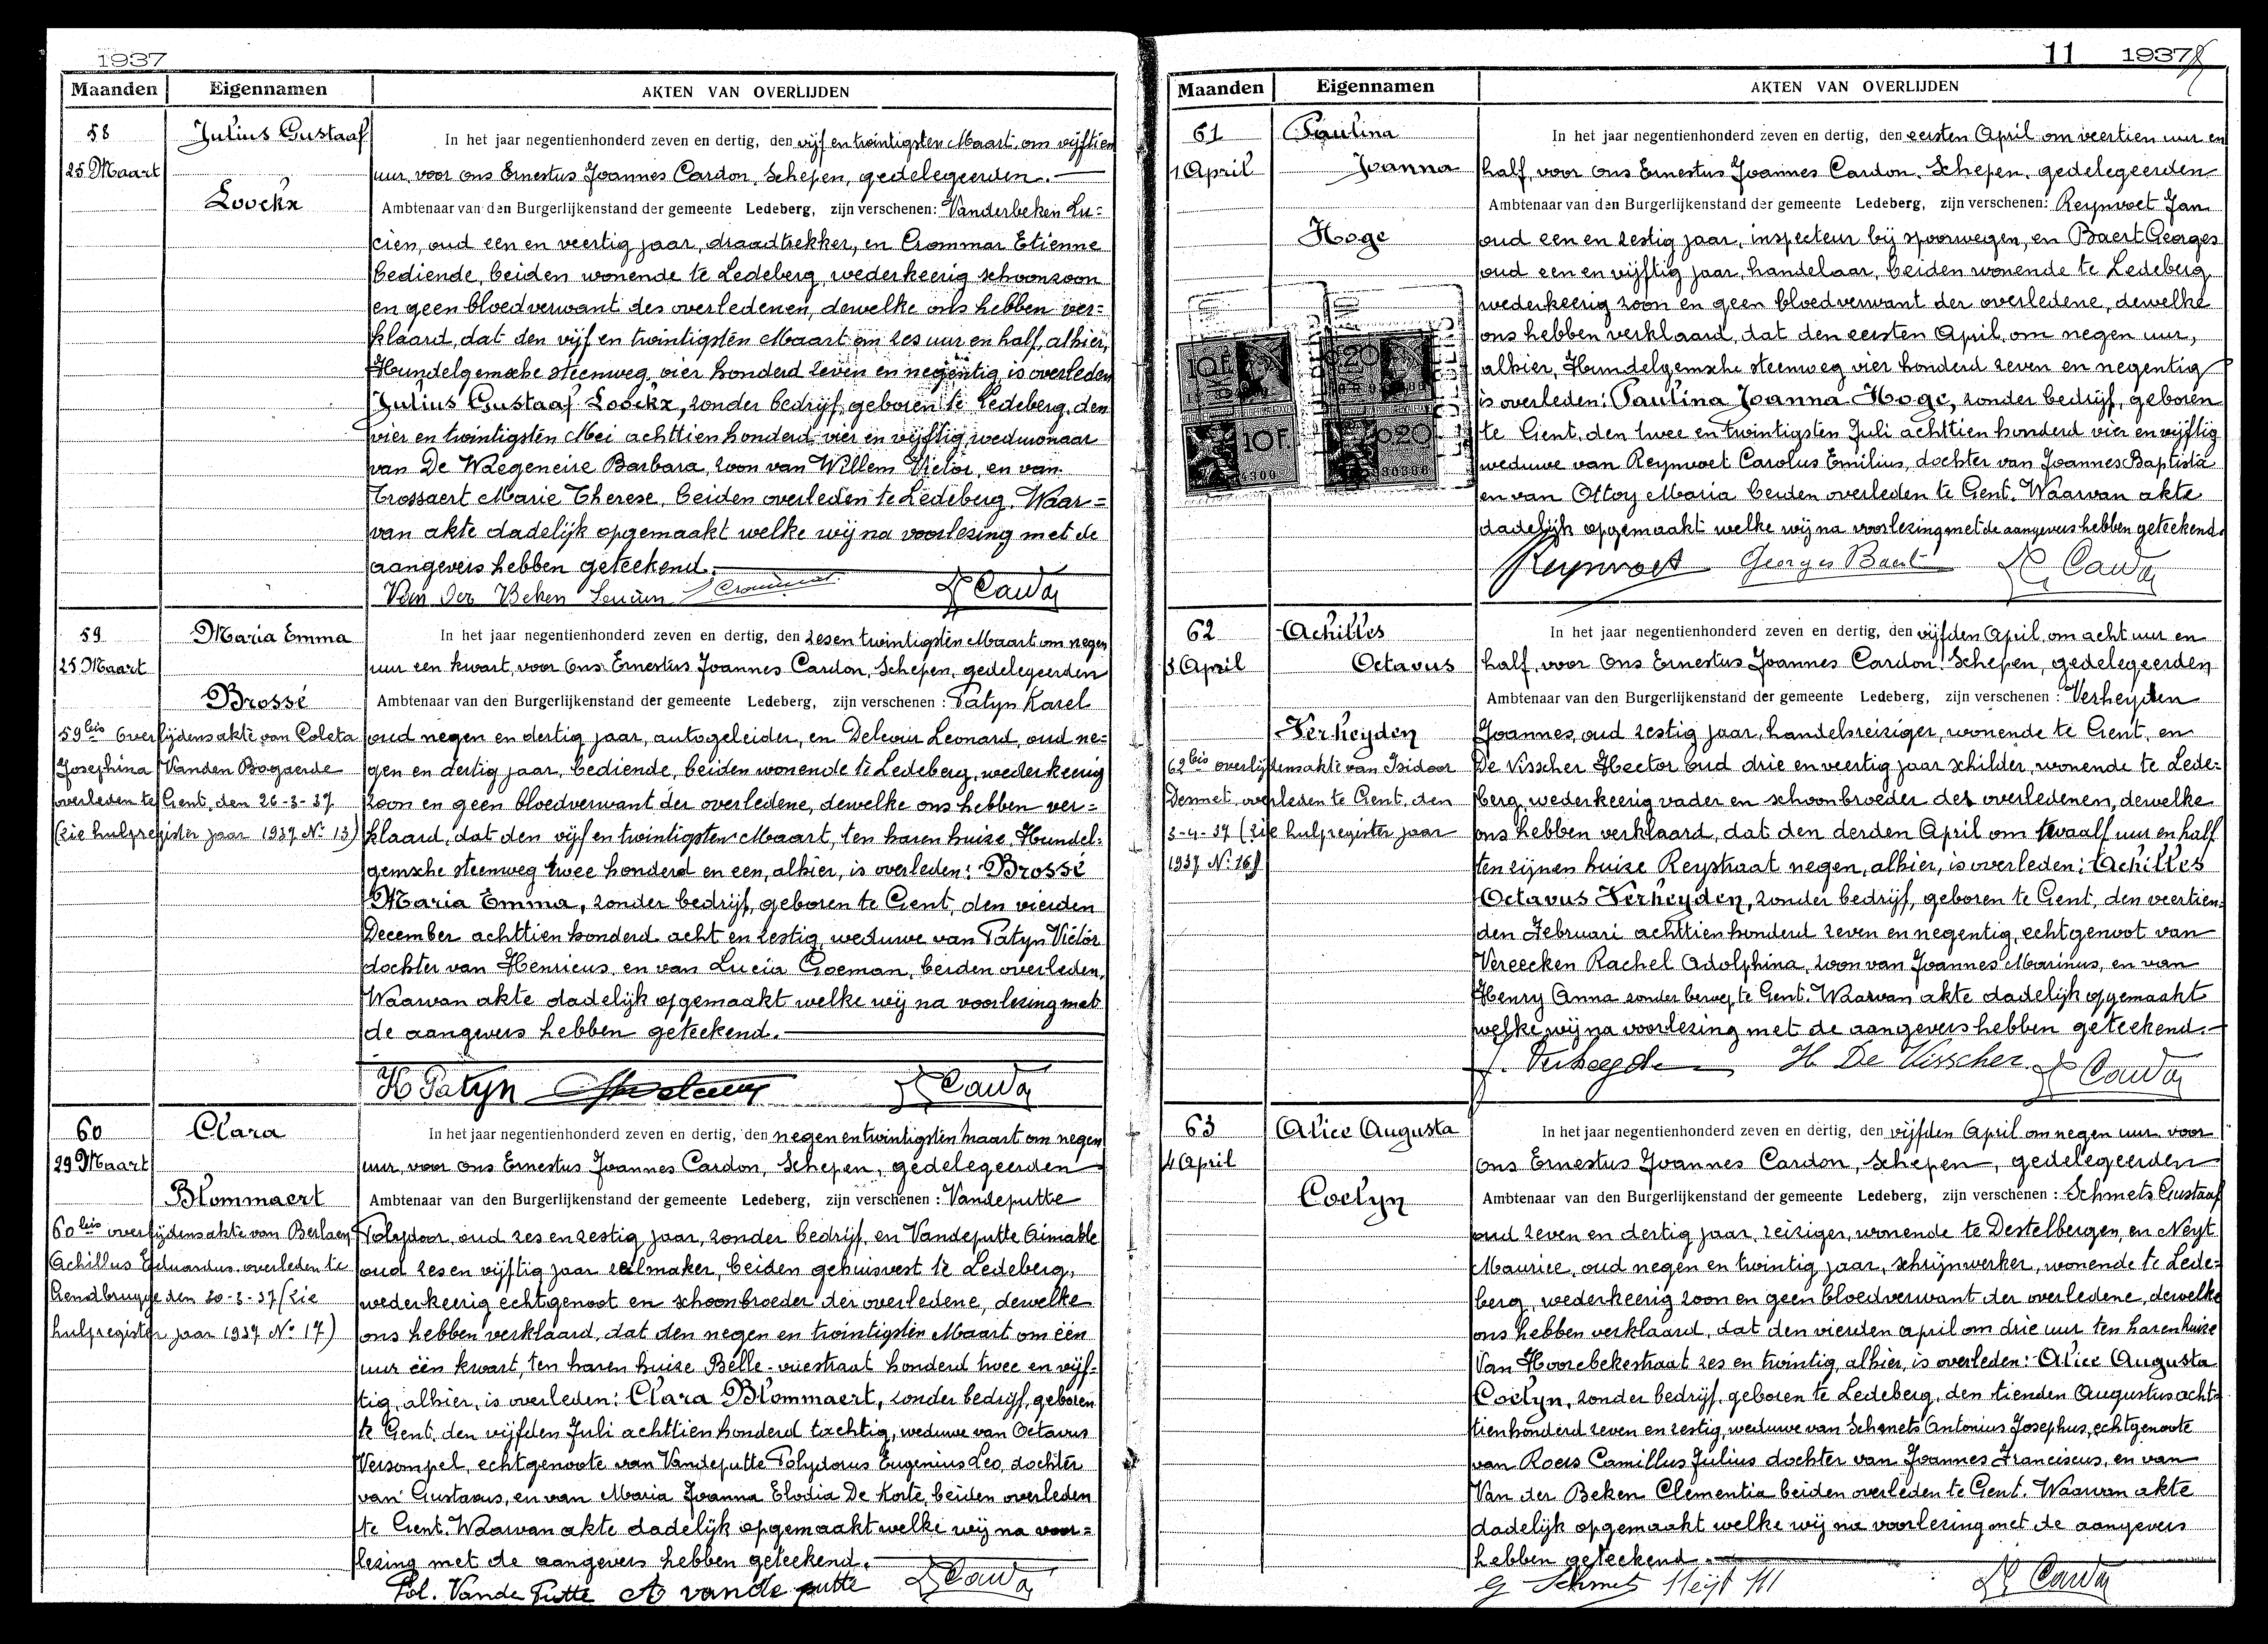 1937
Maanden Eigennamen AKTEN VAN OVERLIJDEN
58
25 Maart
Julius Gustaaf
Loockx
In het jaar negentienhonderd zeven en dertig, den vijf en twintigsten Maart, om vijftien
uur, voor ons Ernestus Joannes Cardon, Schepen, gedelegeerden.
Ambtenaar van den Burgerlijkenstand der gemeente Ledeberg, zijn verschenen: Vanderbeken Lu=
cien, oud een en veertig jaar, draadtrekker, en Crommar Etienne
bediende, beiden wonende te Ledeberg, wederkeerig schoonzoon
en geen bloedverwant des overledenen, dewelke ons hebben ver=
klaard, dat den vijf en twintigsten Maart om zes uur en half, alhier,
Hundelgemsche steenweg, vier honderd zeven en negentig is overleden
Julius Gustaaf Loockx, zonder bedrijf, geboren te Ledeberg, den
vier en twintigsten Mei achttien honderd vier en vijftig, weduwnaar
van De Waegeneire Barbara, zoon van Willem Victor, en van
Trossaert Marie Therese, beiden overleden te Ledeberg. Waar=
van akte dadelijk opgemaakt welke wij na voorlezing met de
aangevers hebben geteekend.
Van der Beken Lucien E Crommar E Cardon
59
25 Maart
Maria Emma
Brossé
59bis Overlijdensakte van Coleta
Josephina Vanden Bogaerde
overleden te Gent, den 26-3-37
(zie hulpregister jaar 1937 No 13)
In het jaar negentienhonderd zeven en dertig, den zesen twintigsten Maart om negen
uur een kwart, voor Ons Ernestus Joannes Cardon, Schepen, gedelegeerden
Ambtenaar van den Burgerlijkenstand der gemeente Ledeberg, zijn verschenen: Patyn Karel
oud negen en dertig jaar, autogeleider, en Deleeuw Leonard, oud ne=
gen en dertig jaar, bediende, beiden wonende te Ledeberg, wederkeerig
zoon en geen bloedverwant der overledene, dewelke ons hebben ver=
klaard, dat den vijf en twintigsten Maart, ten haren huize, Hundel=
gemsche steenweg twee honderd en een, alhier, is overleden: Brossé
Maria Emma, zonder bedrijf, geboren te Gent, den vierden
December achttien honderd acht en zestig, weduwe van Patyn Victor
dochter van Henricus, en van Lucia Goeman, beiden overleden,
Waarvan akte dadelijk opgemaakt welke wij na voorlezing met
de aangevers hebben geteekend.
K Patyn E Cardon
60
29 Maart
Clara
Blommaert
60bis overlijdensakte van Berlaen
Achillus Eduardus overleden te
Gendbrugge den 30-3-37 (zie
hulpregister jaar 1937 No 17)
In het jaar negentienhonderd zeven en dertig, den negen en twintigsten maart om negen
uur, voor Ons Ernestus Joannes Cardon, Schepen, gedelegeerden
Ambtenaar van den Burgerlijkenstand der gemeente Ledeberg, zijn verschenen: Vandeputte
Polydoor, oud zes en zestig jaar, zonder bedrijf, en Vandeputte Aimable
oud zes en vijftig jaar zeelmaker, beiden gehuisvest te Ledeberg,
wederkeerig echtgenoot en schoonbroeder der overledene, dewelke
ons hebben verklaard, dat den negen en twintigsten Maart om één
uur één kwart, ten haren huize Belle-vuestraat honderd twee en vijf-
tig, alhier, is overleden: Clara Blommaert, zonder bedrijf, geboren
te Gent, den vijfden Juli achttien honderd tachtig, weduwe van Octavus
Versompel, echtgenoote van Vandeputte Polydorus Eugenius Leo, dochter
van Gustavus, en van Maria Joanna Elodia De Korte, beiden overleden
te Gent. Waarvan akte dadelijk opgemaakt welke wij na voor=
lezing met de aangevers hebben geteekend.
Pol. Vande Putte A vande putte E Cardon
11 1937
Maanden Eigennamen AKTEN VAN OVERLIJDEN
61
1 April
Paulina
Joanna
Hoge
10F. 020
10F. 020
In het jaar negentienhonderd zeven en dertig, den eersten April om veertien uur en
half, voor ons Ernestus Joannes Cardon, Schepen, gedelegeerden
Ambtenaar van den Burgerlijkenstand der gemeente Ledeberg, zijn verschenen: Reynvoet Jan
oud een en zestig jaar, inspecteur bij spoorwegen, en Baert Georges
oud een en vijftig jaar, handelaar, beiden wonende te Ledeberg
wederkeerig zoon en geen bloedverwant der overledene, dewelke
ons hebben verklaard, dat den eersten April, om negen uur,
alhier, Hundelgemsche steenweg vier honderd zeven en negentig
is overleden: Paulina Joanna Hoge, zonder bedrijf, geboren
te Gent, den twee en twintigsten Juli achttien honderd vier en vijftig
weduwe van Reynvoet Carolus Emilius, dochter van Joannes Baptista
en van Ottoy Maria beiden overleden te Gent. Waarvan akte
dadelijk opgemaakt welke wij na voorlezing met de aangevers hebben geteekend.
Reynvoet Georges Baert E Cardon
62
3 April
Achilles
Octavus
Verheyden
62bis overlijdensakte van Isidoor
Dermet overleden te Gent, den
3-4-37 (zie hulpregister jaar
1937 No 16)
In het jaar negentienhonderd zeven en dertig, den vijfden April, om acht uur en
half, voor Ons Ernestus Joannes Cardon, Schepen, gedelegeerden
Ambtenaar van den Burgerlijkenstand der gemeente Ledeberg, zijn verschenen: Verheyden
Joannes, oud zestig jaar, handelsreiziger, wonende te Gent, en
De Visscher Hector oud drie en veertig jaar schilder, wonende te Lede=
berg, wederkeerig vader en schoonbroeder des overledenen, dewelke
ons hebben verklaard, dat den derden April om twaalf uur en half
ten zijnen huize Reystraat negen, alhier, is overleden: Achilles
Octavus Verheyden, zonder bedrijf, geboren te Gent, den veertien=
den Februari achttien honderd zeven en negentig, echtgenoot van
Vereecken Rachel Adolphina, zoon van Joannes Marinus, en van
Henry Anna zonder beroep te Gent. Waarvan akte dadelijk opgemaakt
welke wij na voorlezing met de aangevers hebben geteekend.
J. Verheyden H De Visscher E Cardon
63
4 April
Alice Augusta
Coelyn
In het jaar negentienhonderd zeven en dertig, den vijfden April om negen uur voor
Ons Ernestus Joannes Cardon, Schepen, gedelegeerden
Ambtenaar van den Burgerlijkenstand der gemeente Ledeberg, zijn verschenen: Schmets Gustaaf
oud zeven en dertig jaar, reiziger, wonende te Destelbergen, en Neyt
Maurice, oud negen en twintig jaar, schrijnwerker, wonende te Lede=
berg, wederkeerig zoon en geen bloedverwant der overledene, dewelke
ons hebben verklaard, dat den vierden april om drie uur ten haren huize
Van Hoorebekestraat zes en twintig, alhier, is overleden: Alice Augusta
Coelyn, zonder bedrijf, geboren te Ledeberg, den tienden Augustus acht=
tien honderd zeven en zestig, weduwe van Schmets Antonius Josephus, echtgenoote
van Roers Camillus Julius dochter van Joannes Franciscus, en van
Van der Beken Clementia beiden overleden te Gent. Waarvan akte
dadelijk opgemaakt welke wij na voorlezing met de aangevers
hebben geteekend.
G Schmets Neyt M E Cardon